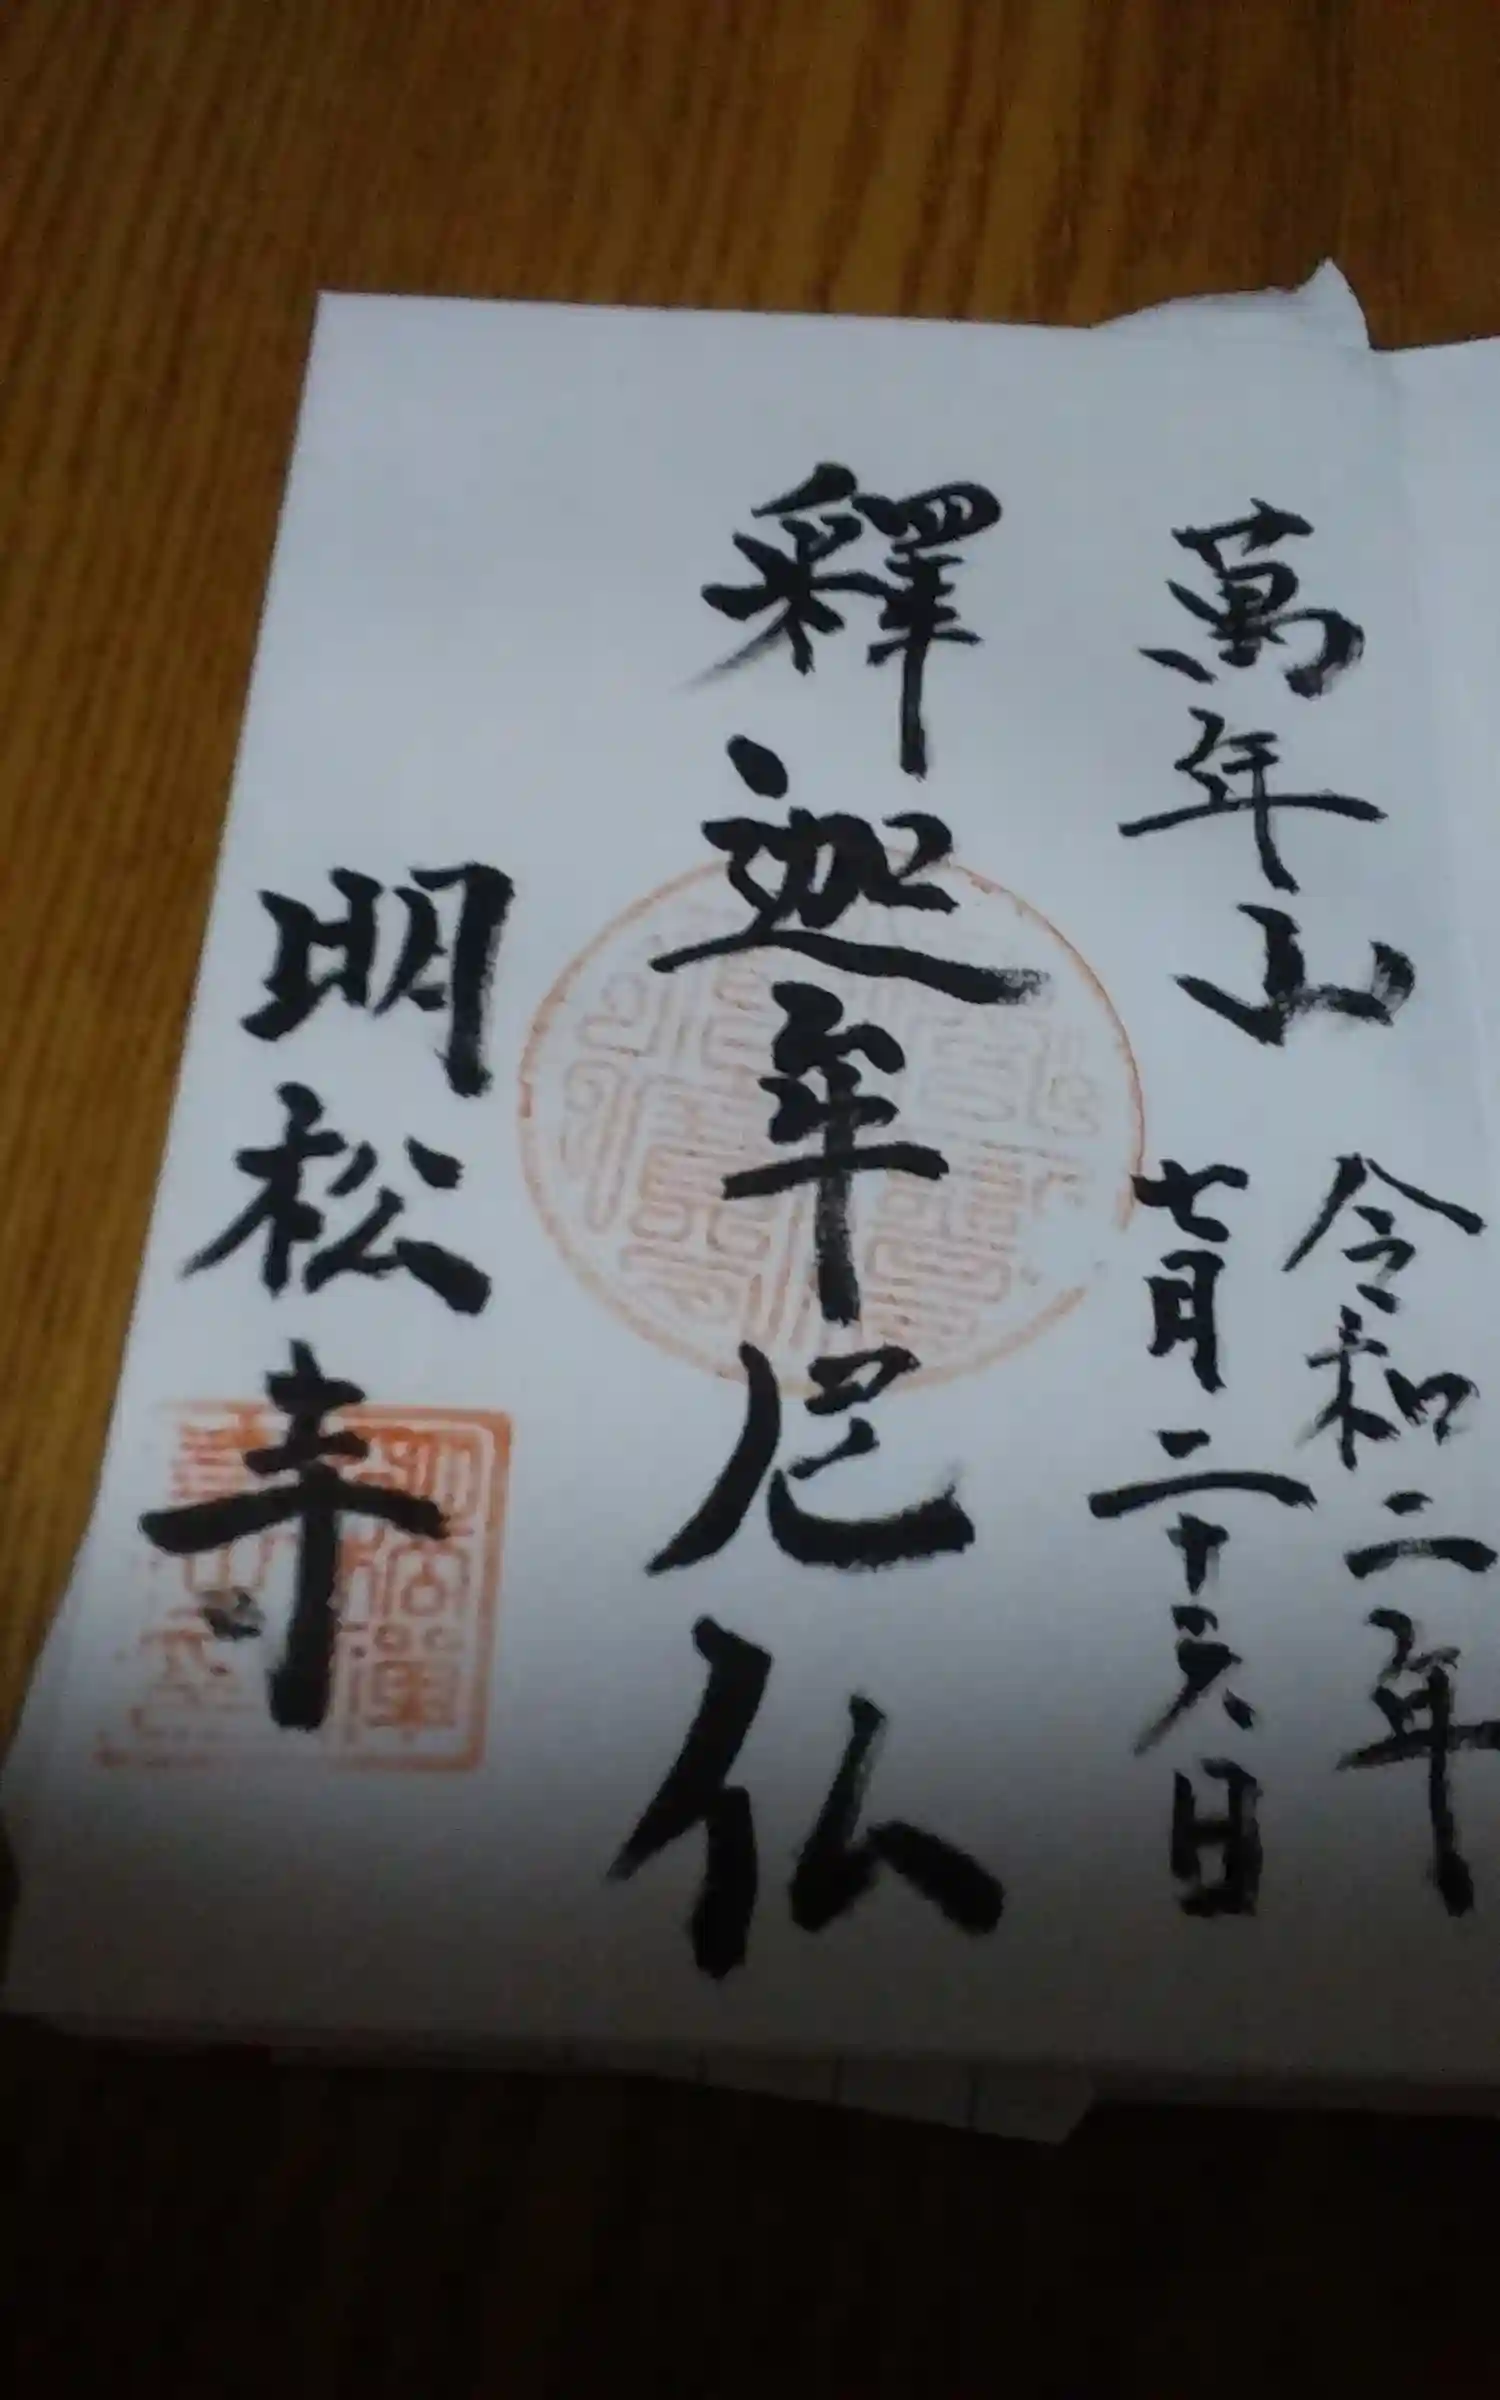 萬年山
令和二年
七月二十六日
釋迦牟尼仏
明松寺